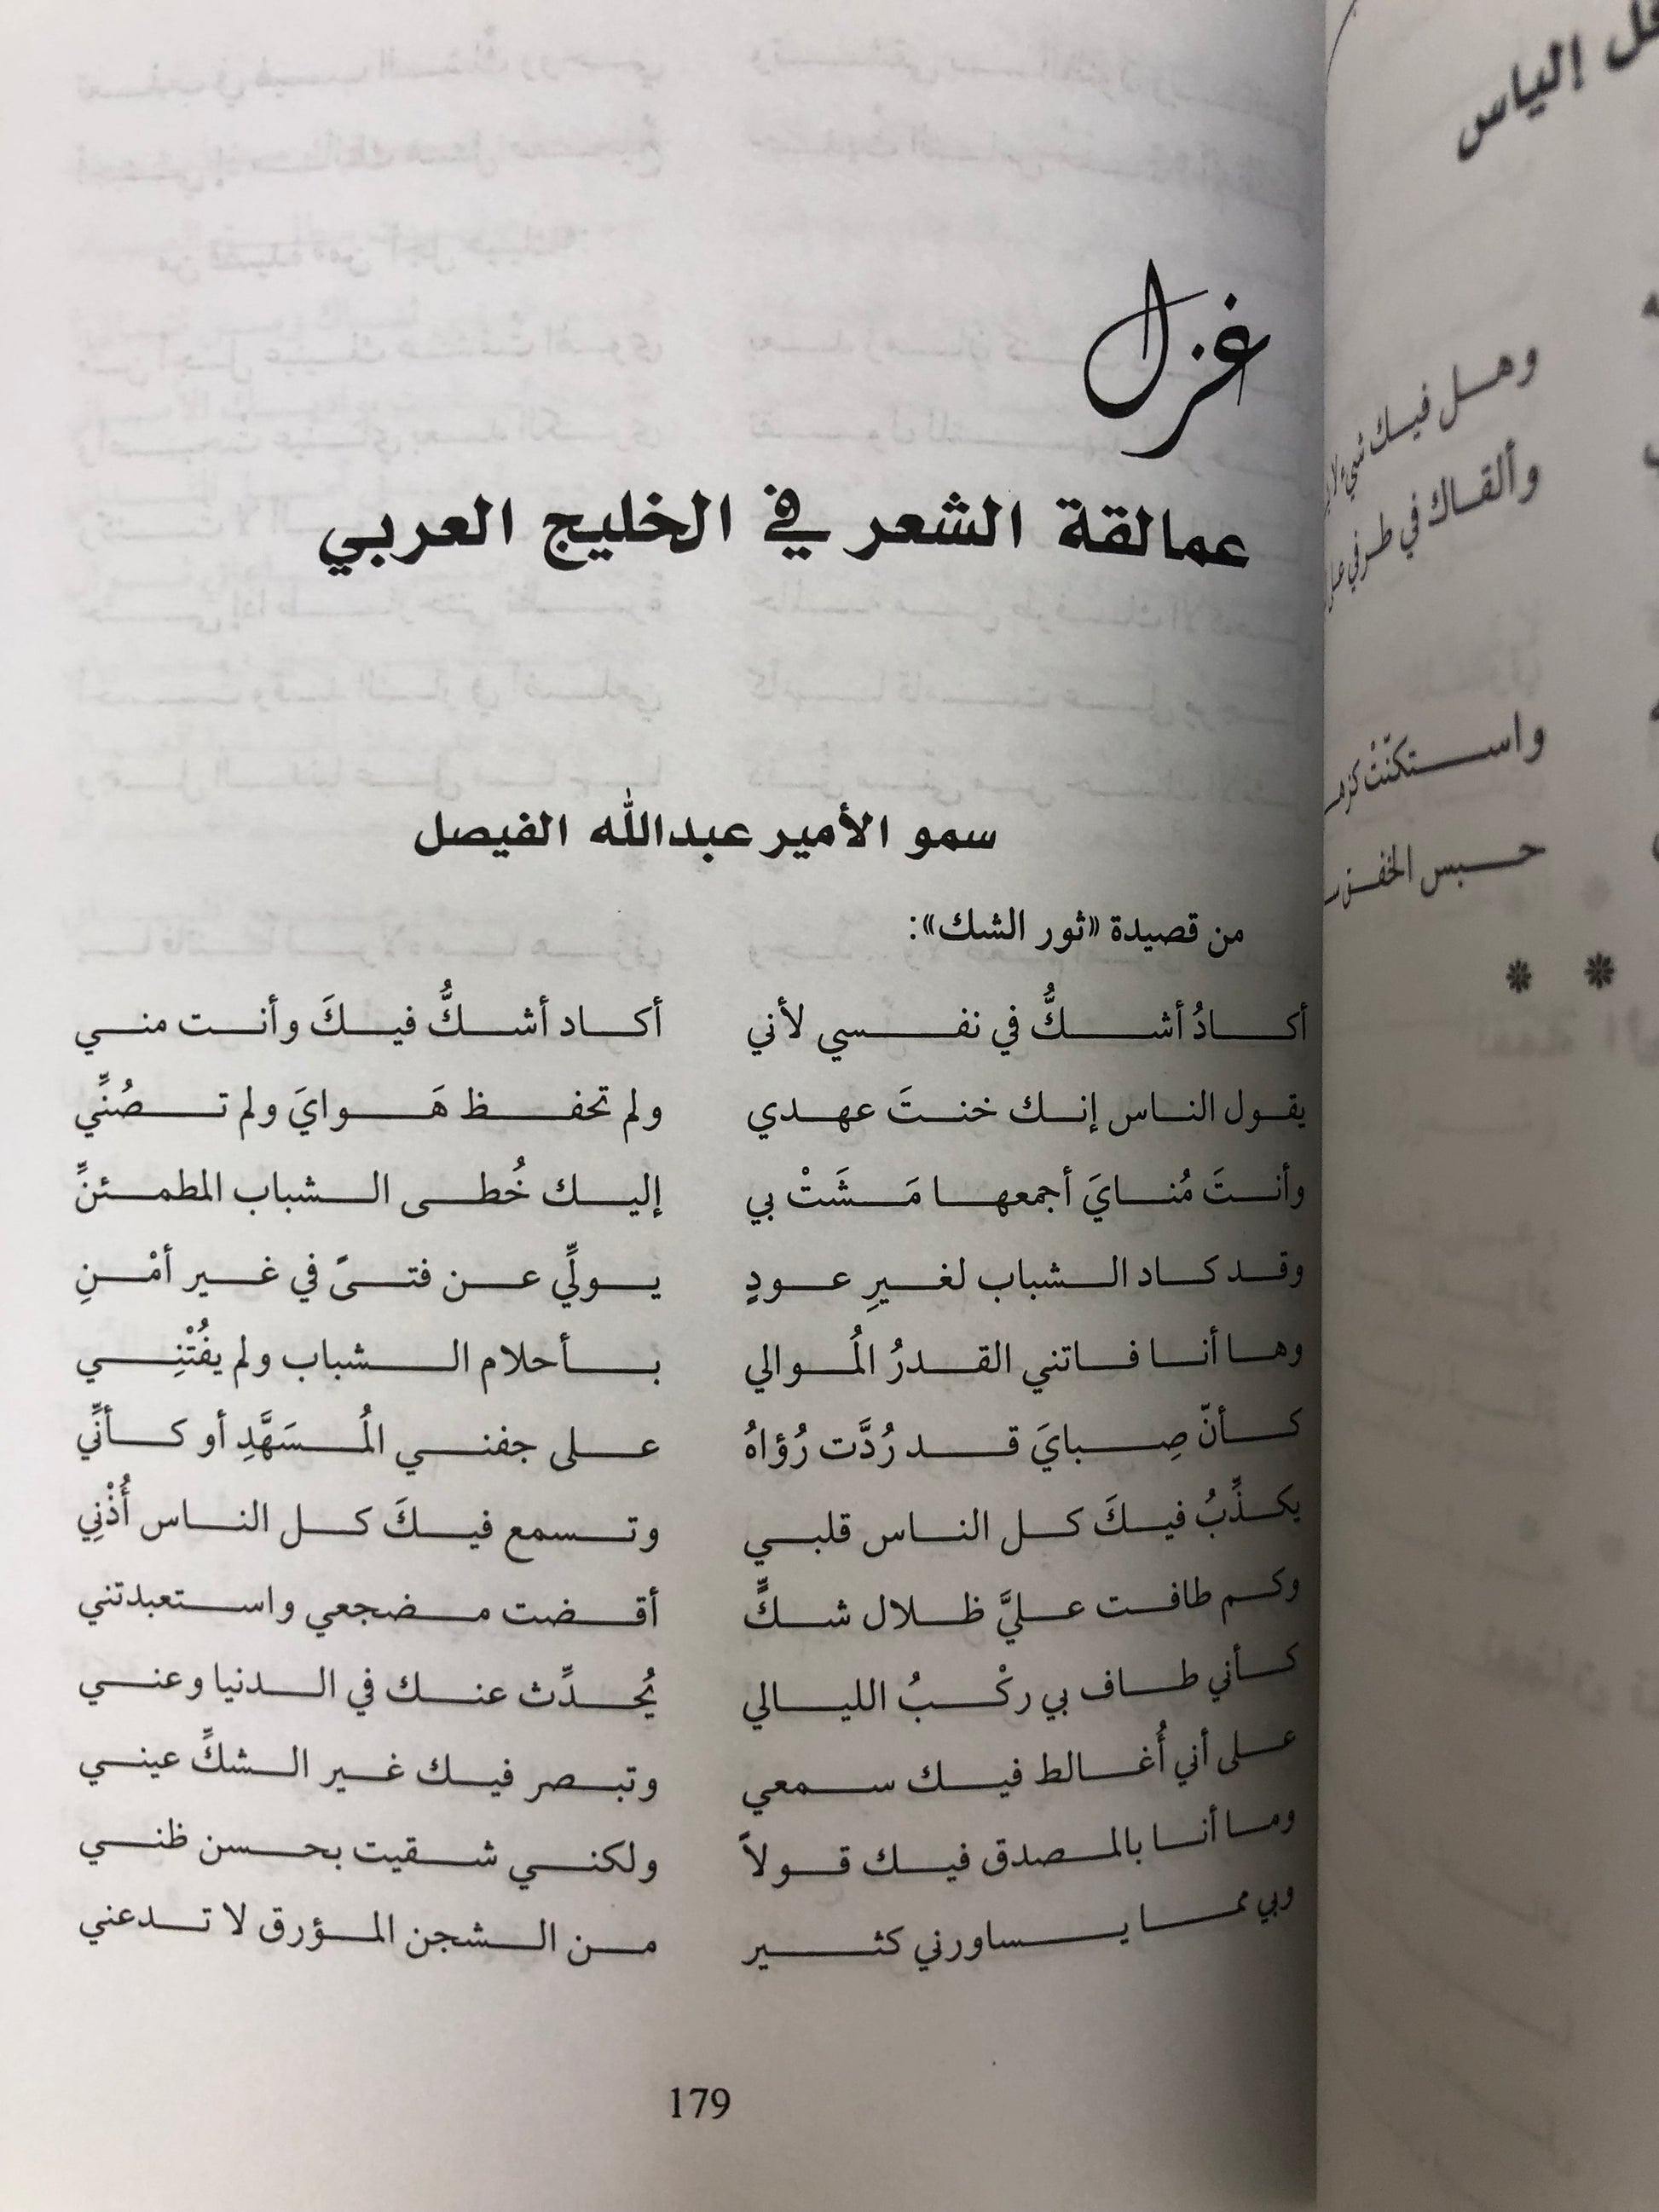 غزل
عمالقة الشعر في الخليج العربي
سمو الأمير عبدالله الفيصل
من قصيدة «ثور الشك»:
أكادُ أشكُّ في نفسي لأني أكاد أشكُّ فيكَ وأنت مني
يقول الناس إنك خنتَ عهدي ولم تحفظ هَوايَ ولم تصُنِّي
وأنتَ مُنايَ أجمعها مَشَتْ بي إليك خُطى الشباب المطمئنِّ
وقد كاد الشباب لغيرِ عودٍ يولِّي عن فتىً في غير أمْنِ
وها أنا فاتني القدرُ المُوالي بأحلام الشباب ولم يفُتْنِي
كأنّ صِبايَ قد رُدَّت رُؤاهُ على جفني المُسَهَّدِ أو كأنِّي
يكذِّبُ فيكَ كل الناس قلبي وتسمع فيكَ كل الناس أُذْنِي
وكم طافت عليَّ ظلال شكٍّ أقضت مضجعي واستعبدتني
كأني طاف بي ركْبُ الليالي يُحدِّث عنك في الدنيا وعني
على أني أُغالط فيك سمعي وتبصر فيك غير الشكِّ عيني
وما أنا بالمصدق فيك قولاً ولكني شقيت بحسن ظني
وبي مما يساورني كثير من الشجن المؤرق لا تدعني
179
إلياس
وهل فيك شيء
وألقاك في طرفي
واستكنّتْ
حبس
* *